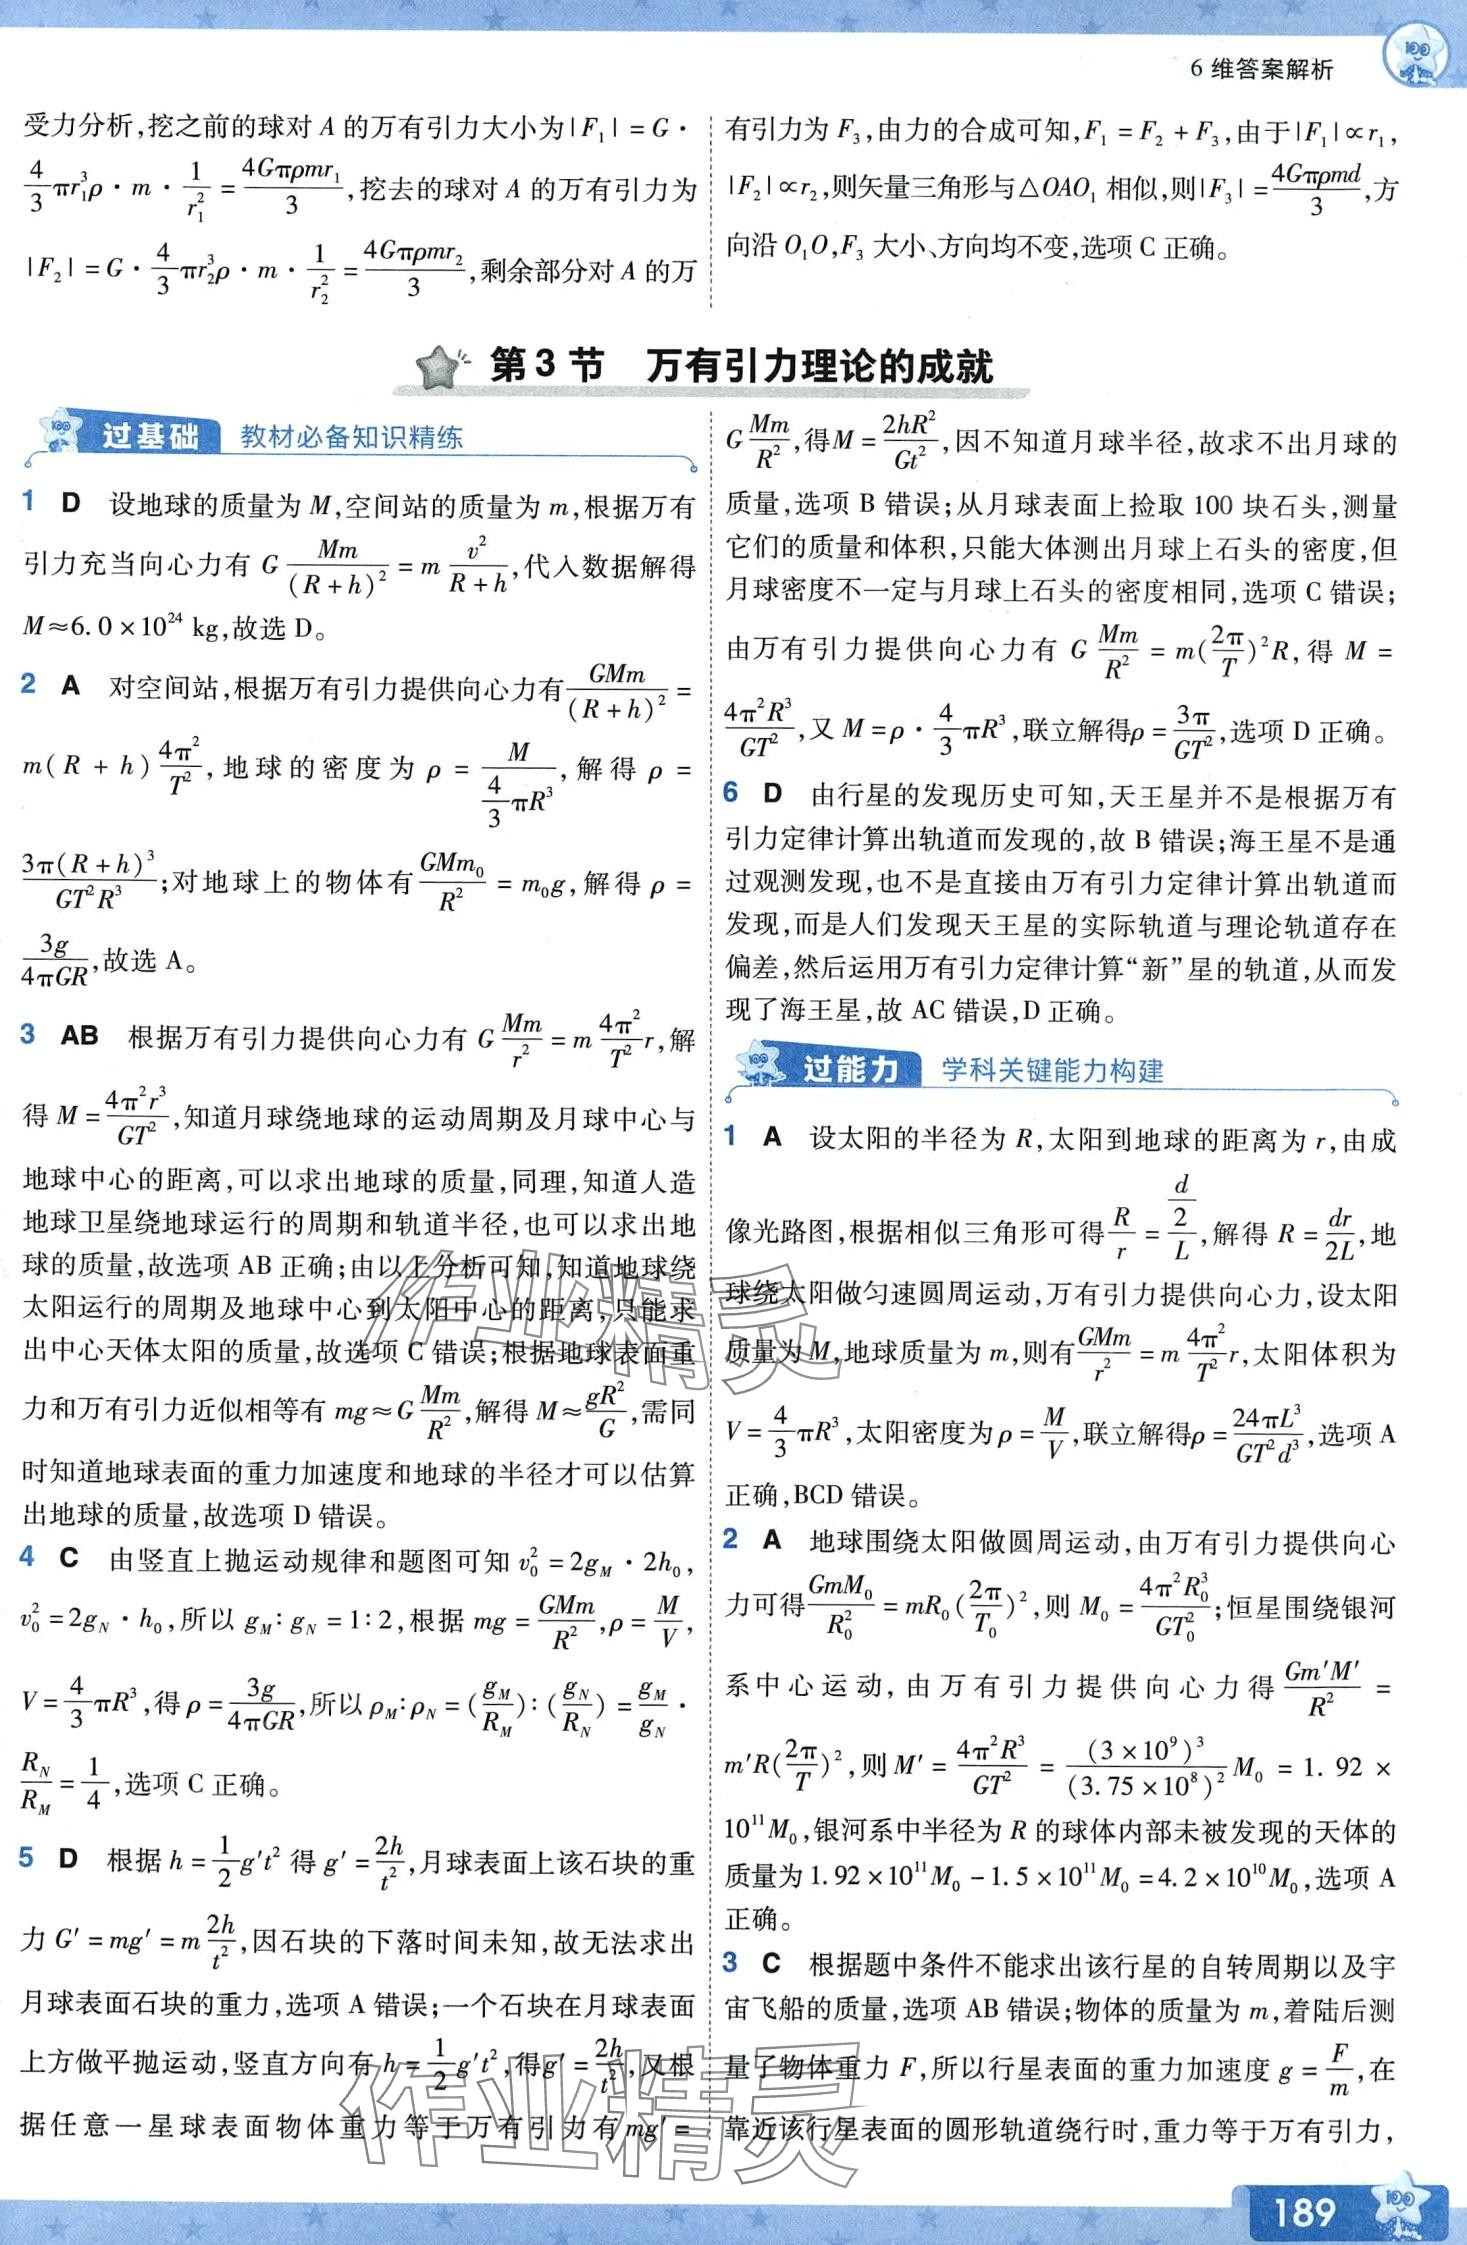 6 维答案解析
受力分析,挖之前的球对 A 的万有引力大小为|F₁| = G ·
4/3 πr₁³ρ · m · 1/r₁² = 4Gπρmr₁/3,挖去的球对 A 的万有引力为
|F₂| = G · 4/3 πr₂³ρ · m · 1/r₂² = 4Gπρmr₂/3,剩余部分对 A 的万
有引力为 F₃,由力的合成可知,F₁ = F₂ + F₃,由于|F₁|∝r₁,
|F₂|∝r₂,则矢量三角形与△OAO₁ 相似,则|F₃| = 4Gπρmd/3,方
向沿 O₁O,F₃ 大小、方向均不变,选项 C 正确。
第 3 节 万有引力理论的成就
过基础 教材必备知识精练
1 D 设地球的质量为 M,空间站的质量为 m,根据万有
引力充当向心力有 G Mm/(R+h)² = m v²/(R+h),代入数据解得
M≈6.0×10²⁴ kg,故选 D。
2 A 对空间站,根据万有引力提供向心力有 GMm/(R+h)² =
m(R+h) 4π²/T²,地球的密度为 ρ = M/(4/3 πR³),解得 ρ =
3π(R+h)³/GT²R³;对地球上的物体有 GMm₀/R² = m₀g,解得 ρ =
3g/4πGR,故选 A。
3 AB 根据万有引力提供向心力有 G Mm/r² = m 4π²/T² r,解
得 M = 4π²r³/GT²,知道月球绕地球的运动周期及月球中心与
地球中心的距离,可以求出地球的质量,同理,知道人造
地球卫星绕地球运行的周期和轨道半径,也可以求出地
球的质量,故选项 AB 正确;由以上分析可知,知道地球绕
太阳运行的周期及地球中心到太阳中心的距离,只能求
出中心天体太阳的质量,故选项 C 错误;根据地球表面重
力和万有引力近似相等有 mg≈G Mm/R²,解得 M≈gR²/G,需同
时知道地球表面的重力加速度和地球的半径才可以估算
出地球的质量,故选项 D 错误。
4 C 由竖直上抛运动规律和题图可知 v₀² = 2g_M · 2h₀,
v₀² = 2g_N · h₀,所以 g_M∶g_N = 1∶2,根据 mg = GMm/R²,ρ = M/V,
V = 4/3 πR³,得 ρ = 3g/4πGR,所以 ρ_M∶ρ_N = (g_M/R_M)∶(g_N/R_N) = g_M/g_N ·
R_N/R_M = 1/4,选项 C 正确。
5 D 根据 h = 1/2 g′t² 得 g′ = 2h/t²,月球表面上该石块的重
力 G′ = mg′ = m 2h/t²,因石块的下落时间未知,故无法求出
月球表面石块的重力,选项 A 错误;一个石块在月球表面
上方做平抛运动,竖直方向有 h = 1/2 g′t²,得g′ = 2h/t²,又根
据任意一星球表面物体重力等于万有引力有 mg′ =
G Mm/R²,得 M = 2hR²/Gt²,因不知道月球半径,故求不出月球的
质量,选项 B 错误;从月球表面上捡取 100 块石头,测量
它们的质量和体积,只能大体测出月球上石头的密度,但
月球密度不一定与月球上石头的密度相同,选项 C 错误;
由万有引力提供向心力有 G Mm/R² = m(2π/T)²R,得 M =
4π²R³/GT²,又 M = ρ · 4/3 πR³,联立解得ρ = 3π/GT²,选项 D 正确。
6 D 由行星的发现历史可知,天王星并不是根据万有
引力定律计算出轨道而发现的,故 B 错误;海王星不是通
过观测发现,也不是直接由万有引力定律计算出轨道而
发现,而是人们发现天王星的实际轨道与理论轨道存在
偏差,然后运用万有引力定律计算“新”星的轨道,从而发
现了海王星,故 AC 错误,D 正确。
过能力 学科关键能力构建
1 A 设太阳的半径为 R,太阳到地球的距离为 r,由成
像光路图,根据相似三角形可得 R/r = (d/2)/L,解得 R = dr/2L,地
球绕太阳做匀速圆周运动,万有引力提供向心力,设太阳
质量为 M,地球质量为 m,则有 GMm/r² = m 4π²/T² r,太阳体积为
V = 4/3 πR³,太阳密度为 ρ = M/V,联立解得ρ = 24πL³/GT²d³,选项 A
正确,BCD 错误。
2 A 地球围绕太阳做圆周运动,由万有引力提供向心
力可得 GmM₀/R₀² = mR₀(2π/T₀)²,则 M₀ = 4π²R₀³/GT₀²;恒星围绕银河
系中心运动,由万有引力提供向心力得 Gm′M′/R² =
m′R(2π/T)²,则 M′ = 4π²R³/GT² = (3×10⁹)³/(3.75×10⁸)² M₀ = 1.92×
10¹¹M₀,银河系中半径为 R 的球体内部未被发现的天体的
质量为 1.92×10¹¹M₀ - 1.5×10¹¹M₀ = 4.2×10¹⁰M₀,选项 A
正确。
3 C 根据题中条件不能求出该行星的自转周期以及宇
宙飞船的质量,选项 AB 错误;物体的质量为 m,着陆后测
量了物体重力 F,所以行星表面的重力加速度 g = F/m,在
靠近该行星表面的圆形轨道绕行时,重力等于万有引力,
作业精灵
作业精灵
189